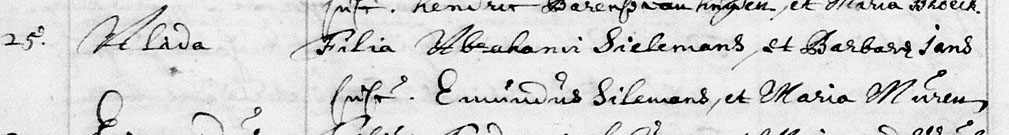 susc. Hendric Barens van , et Maria Broeck.
25. Alida Filia Abrahami Sielemans, et Barbarę Jans
susc. Emundus Silemans, et Maria Muren